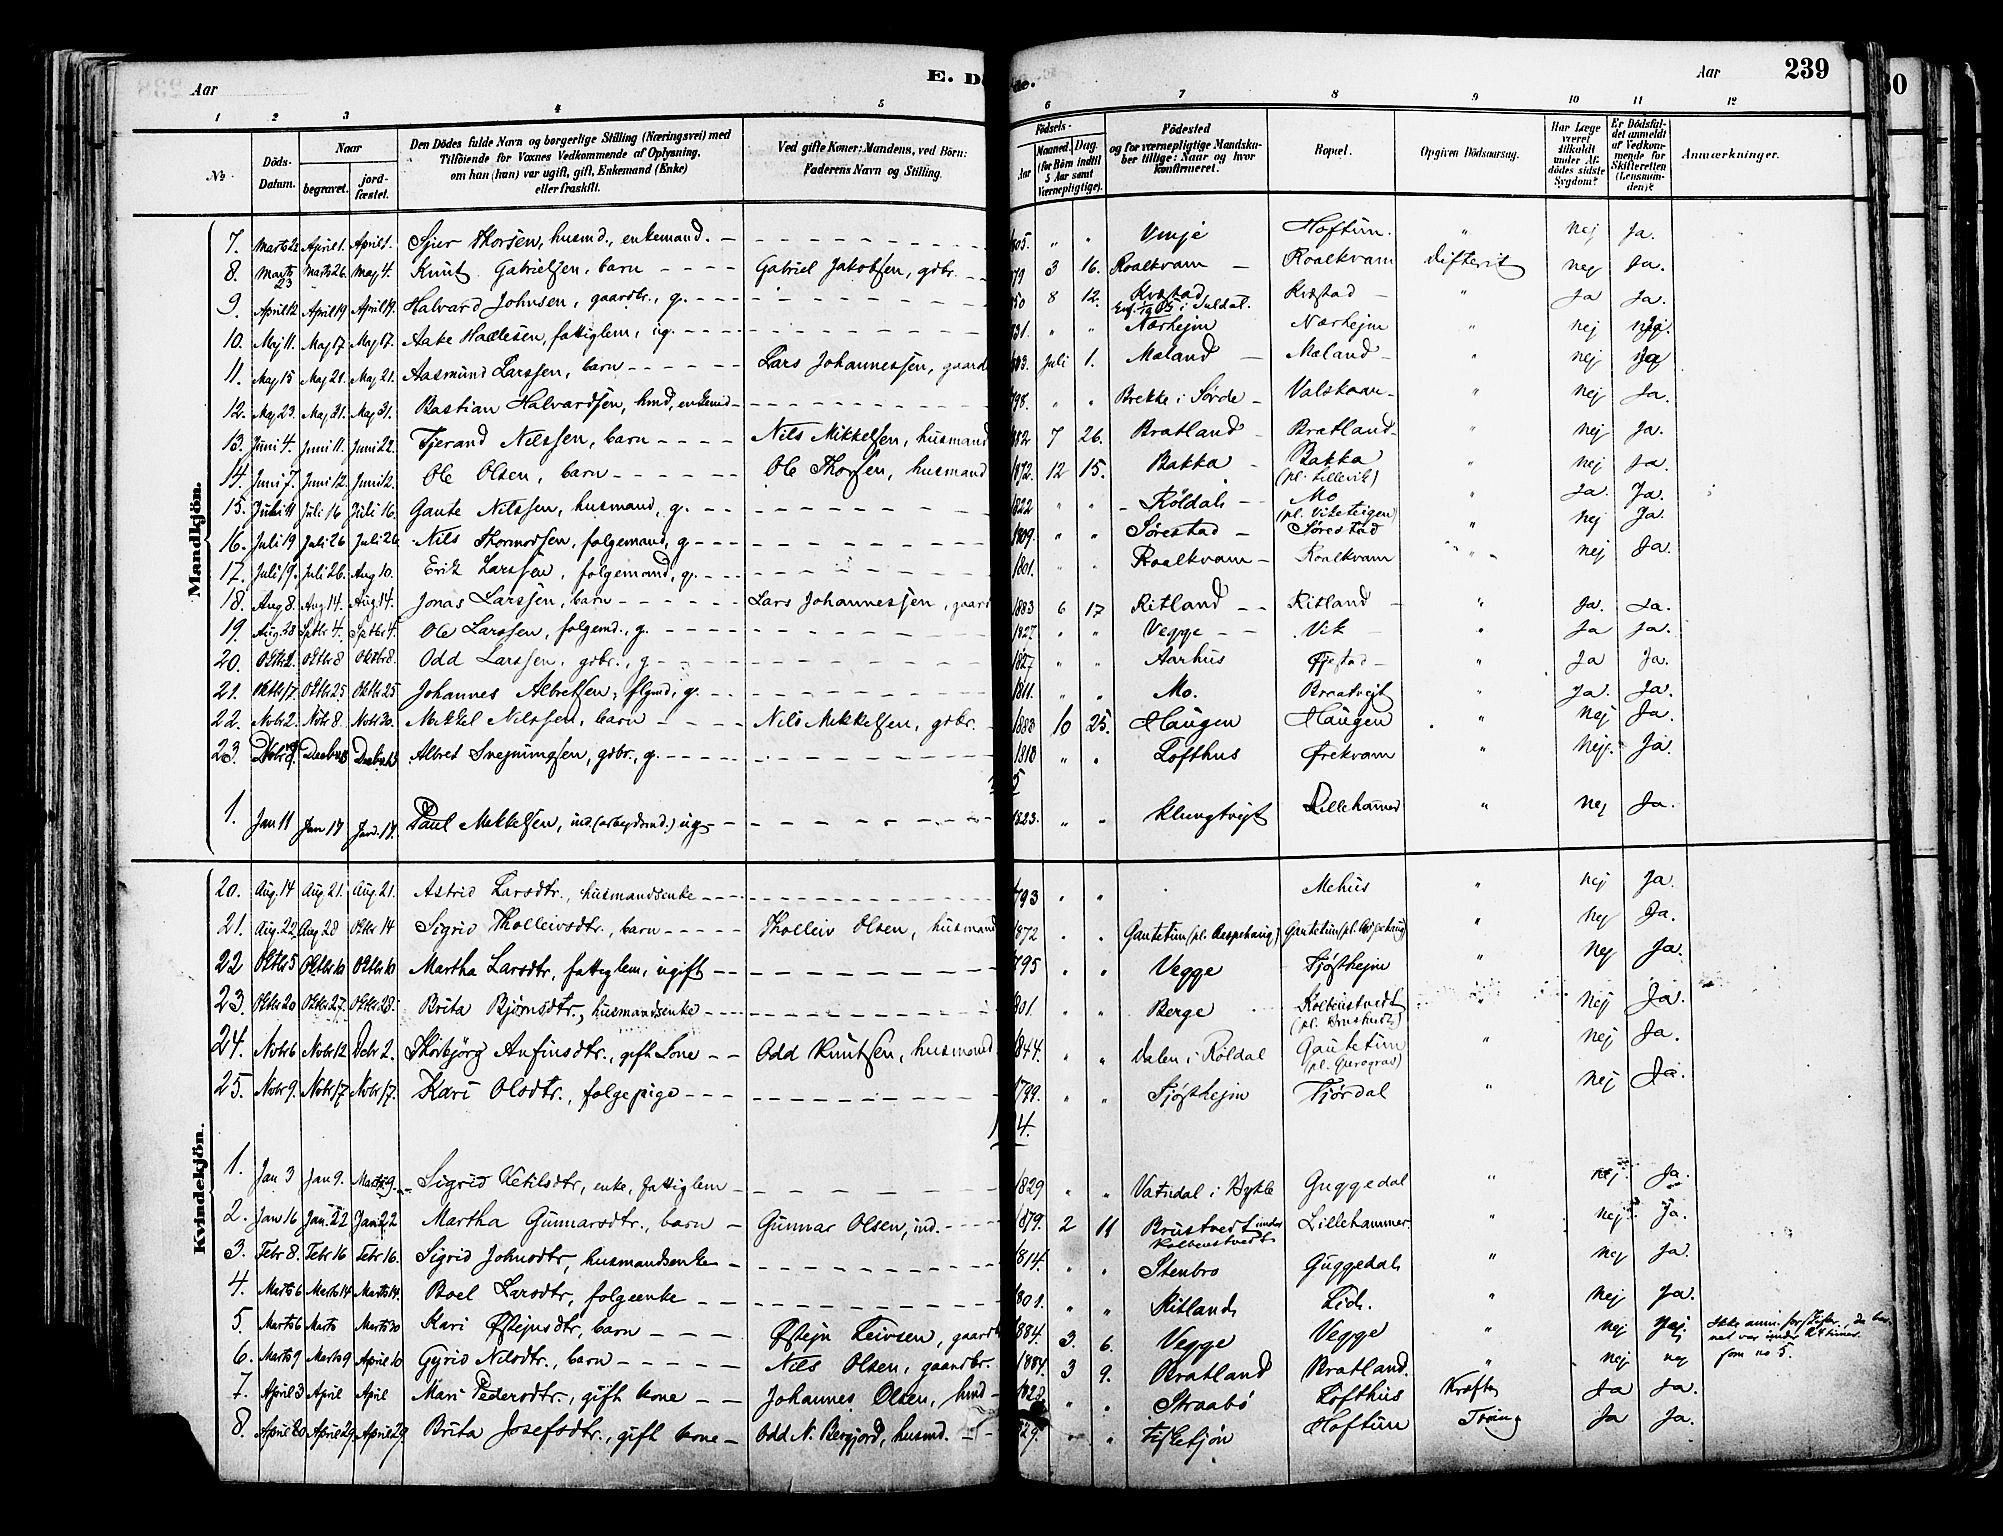 Aar
E. Dö
de.
Aar
239
1 2 3 4 5 6 7 8 9 10 11 12
№
Döds-Datum.
Naar
begravet.
jordfæstet.
Den Dödes fulde Navn og borgerlige Stilling (Næringsvei) med Tilföiende for Voxnes Vedkommende af Oplysning, om han (hun) var ugift, gift, Enkemand (Enke) eller fraskilt.
Ved gifte Koner: Mandens, ved Börn: Faderens Navn og Stilling.
Födsels-
Aar
Maaned. Dag.
(for Börn indtil 5 Aar samt Værnepligtige).
Födested og for værnepligtige Mandskaber tillige: Naar og hvor konfirmeret.
Bopæl.
Opgiven Dödsaarsag.
Har Læge været tilkaldt under Afdödes sidste Sygdom?
Er Dödsfaldet anmeldt af Vedkommende for Skifteretten (Lensmanden)?
Anmærkninger.
Mandkjön.
7. Marts 22 April 1. April 1. Sjur Thorsen, husmd., enkemand. 805. " " Vinje Hoftun. " nej Ja.
8. Marts 23 Marts 26. Maj 4. Knut Gabrielsen, barn Gabriel Jakobsen, gdbr. 79 3 16. Roalkvam Roalkvam Difterit nej Ja.
9. April 12 April 19 April 19. Halvard Johnsen, gaardbr., g. 50 8 12. Kvæstad i Suldal. Kvæstad " Ja Ja.
10. Maj 11. Maj 17 Maj 17. Aake Hadlesen, fattiglem, ug. 31. " " Nærhejm Nærhejm " nej
11. Maj 15 Maj 21. Maj 21. Aasmund Larssen, barn Lars Johannessen, gaard 883. Juli 1. Mæland Mæland " nej
12. Maj 23. Maj 31. Maj 31. Bastian Halvardsen, hmd, enkemd 798. " " Brekke i Sövde Valskaar " nej Ja.
13. Juni 4. Juni 11. Juni 22. Tjerand Nilssen, barn Nils Mikkelsen, husmand 882 7 26. Bratland Bratland " nej Ja.
14. Juni 7. Juni 12. Juni 12. Ole Olsen, barn Ole Thorsen, husmand 1872. 12 15. Bakka Bakka (pl. Lillevik) " nej Ja.
15. Juli 11 Juli 16 Juli 16. Gaute Nilssen, husmand, g. 1822 " " Röldal Mo (pl. Viketeigen) " Ja. Ja.
16. Juli 19 Juli 26 Juli 26 Nils Thormodsen, folgemand, g 1809. " " Sörestad Sörestad " nej Ja.
17. Juli 19. Juli 26. Aug 10. Erik Larssen, folgemand, g. 1801. " " Roalkvam Roalkvam " nej Ja.
18. Aug 8. Aug 14. Aug 14. Jonas Larssen, barn Lars Johannessen, gaard 1883 6 17 Ritland Ritland " Ja. Ja.
19. Aug. 28 Sptbr 4. Sptbr 4. Ole Larssen, folgemd., g. 1827 " " Vegge Vik " Ja Ja.
20. Oktbr 2. Oktbr 8 Oktbr 8. Odd Larssen, gdbr., g 1827 " " Aarhus Gjestad " Ja Ja.
21. Oktbr 17 Oktbr 25 Oktbr 25 Johannes Albretsen, flgmd, g. 1811. " " Mo. Braatvejt " Ja. Ja.
22. Novbr 2. Novbr 8 Novbr 30. Mikkel Nilssen, barn Nils Mikkelsen, gdbr. 1880 10 25. Haugen Haugen " nej Ja.
23. Albret Svejnungsen, gdbr., g. 1810 " " Lofthus Ørekvam " nej. Ja
1. Jan 11 Jan 17 Jan. 17. Paul Mikkelsen, ind. (arbejdsmd.) ug 1823. " " Klungtvejt Lillehammer " nej Ja.
Kvindekjön.
20. Aug. 14 Aug 21. Aug 21. Astrid Larsdtr., husmandsenke 793 " " Mehus " nej Ja.
21. Aug. 22 Aug 28 Oktbr 14 Sigrid Tholleivsdtr., barn Tholleiv Olsen, husmand 1872 " " Gautetun (pl. Aaspehaug) Gautetun (pl. Aspehaug) " nej Ja.
22 Oktbr 5 Oktbr 10 Oktbr 10 Martha Larsdtr., fattiglem, ugift 795 " " Vegge Fjösthejm " nej Ja.
23. Oktbr 20 Oktbr 27. Oktbr 28. Brita Bjørnsdtr., husmandsenke 801. " " Berge Kolbenstvedt (pl. Brustvedt) " nej Ja.
24. Novbr 6 Novbr 12 Dcbr 2. Thorbjörg Anfinsdtr., gift Kone Odd Knutsen, husmand 1844. " " Dalen i Röldal Gautetun " nej Ja.
25. Novbr 9. Novbr 17 Novbr 17. Kari Olsdtr., folgepige 1799. " " Fjösthejm Fjördal " nej Ja.
1. Jan 3 Jan 9. Marts 9. Sigrid Ketilsdtr, enke, fattiglem 1829 " " Vatndal i Bykle Guggedal " nej. Ja.
2. Jan 16 Jan. 22 Jan 22 Martha Gunnarsdtr., barn Gunnar Olsen, ind. 1879. 2 11 Brustvedt under Kolbenstvedt Lillehammer " nej Ja.
3. Febr 8. Febr 16 Febr 16. Sigrid Johnsdtr, husmandsenke 1814. " " Stenbro Guggedal " nej Ja.
4. Marts 6 Marts 14 Marts 14. Boel Larsdtr, folgeenke 801. " " Ritland Lid. " nej Ja.
5. Marts 6 Marts Marts 30 Kari Østejnsdtr, barn Østejn Leivsen, gaardb 1884. 3. 6. Vegge Vegge " nej Ikke anm. for Skifter., da barnet var under 24 timer.
6. Marts 9 Marts 9 April 10 Gyrid Nilsdtr., barn Nils Olsen, gaardbr. 1884. 3 9. Bratland Bratland. " nej nej som no 5.
7. April 3 April April Mari Pedersdtr., gift kone Johannes Olsen, hmd 1828. " " Straabö Lofthus Kræft Ja Ja.
8. April 20 April 29 April 29 Brita Josefsdtr., gift kone Odd N. Bergjord, husmd. 29. " " Fisketjön Hoftun Tæring Ja Ja.